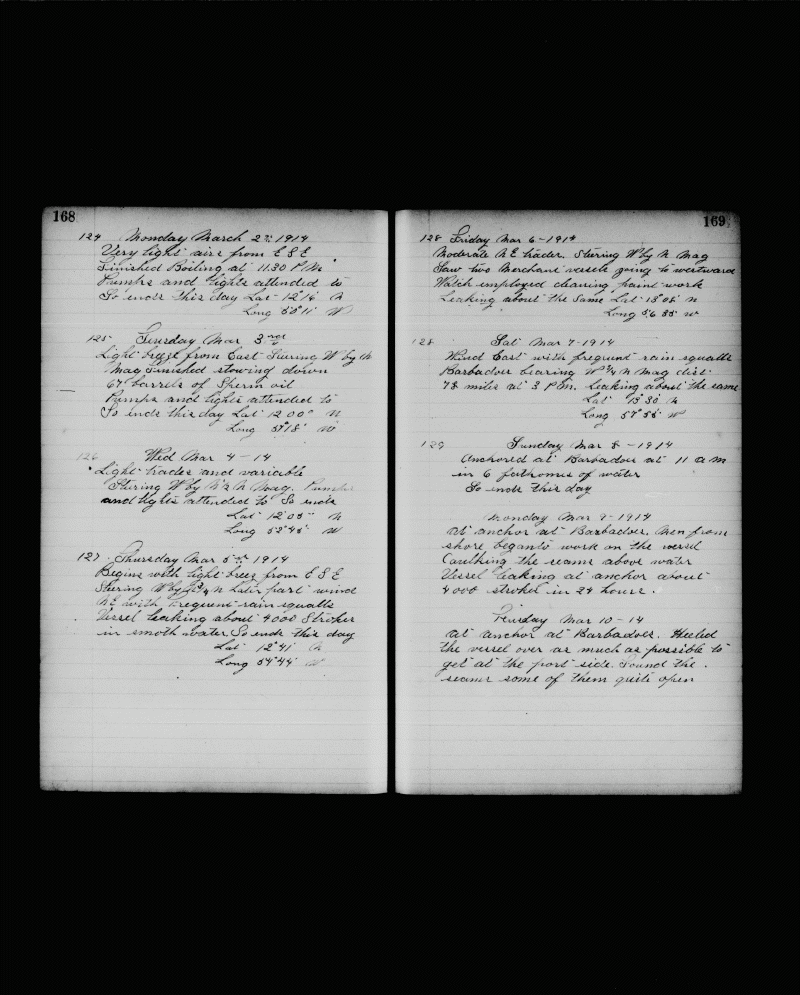 168
124 Monday March 2nd 1914
Very light airs from E S E
Finished Boiling at 11.30 P M
Pumps and lights attended to
So ends this day Lat 12° 14' N
Long 50° 11' W
125 Tuesday Mar 3rd
Light breese from East Steering W by N
Mag Finished stowing down
67 barrels of Sperm oil
Pumps and lights attended to
So ends this day Lat 12 00' N
Long 51° 18' W
126 Wed Mar 4 - 14
Light trades and variable
Stering W by N ½ N Mag. Pumps
and lights attended to So ends
Lat 12° 05' N
Long 52° 45' W
127. Thursday Mar 5th 1914
Begins with light brees from E S E
Steering W by N ¾ N Later part wind
N E with frequent rain squalls
Vessel leaking about 4000 Strokes
in smoth water So ends this day
Lat 12° 41' N
Long 54° 44' W
169
128 Friday Mar 6 - 1914
Moderate N E trades. Steering W by N Mag
Saw two Merchant vessels going to westward
Watch employed cleaning paint work
Leaking about the same Lat 13° 05' N
Long 56 35' W
128 Sat Mar 7 - 1914
Wind East with frequnt rain squalls
Barbados bearing W ¾ N Mag dist
78 miles at 3 P M. Leaking about the same
Lat 13° 30' N
Long 57° 55' W
129 Sunday Mar 8 - 1914
Anchored at Barbados at 11 a m
in 6 fathomes of water
So ends this day
Monday Mar 9 - 1914
at anchor at Barbados, Men from
shore began to work on the vessel
Caulking the seams above water
Vessel leaking at anchor about
4000 strokes in 24 hours.
Tuesday Mar 10 - 14
at anchor at Barbados. Heeled
the vessel over as much as possible to
get at the port side. Found the
seams some of them quite open